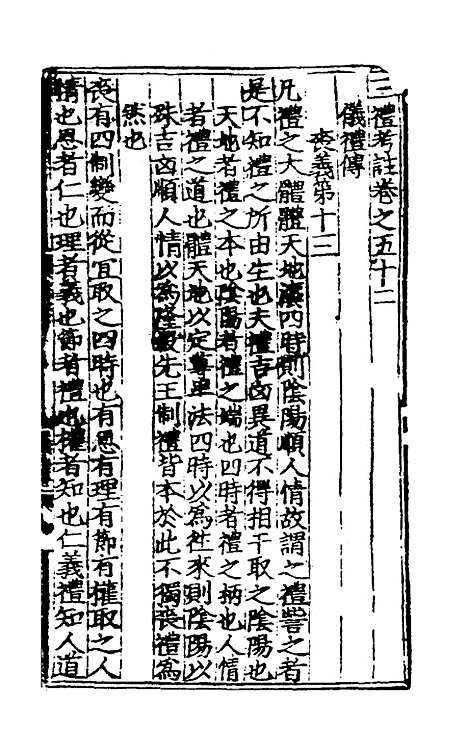 三禮考註卷之五十二
儀禮傳
喪義第十三
凡禮之大體體天地法四時則陰陽順人情故謂之禮訾之者
是不知禮之所由生也夫禮吉凶異道不得相干取之陰陽也
天地者禮之本也陰陽者禮之端也四時者禮之柄也人情
者禮之道也體天地以定尊卑法四時以為往來則陰陽以
殊吉凶順人情以為隆殺先王制禮皆本於此不獨喪禮為
然也
喪有四制變而從宜取之四時也有恩有理有節有權取之人
情也恩者仁也理者義也節者禮也權者知也仁義禮知人道